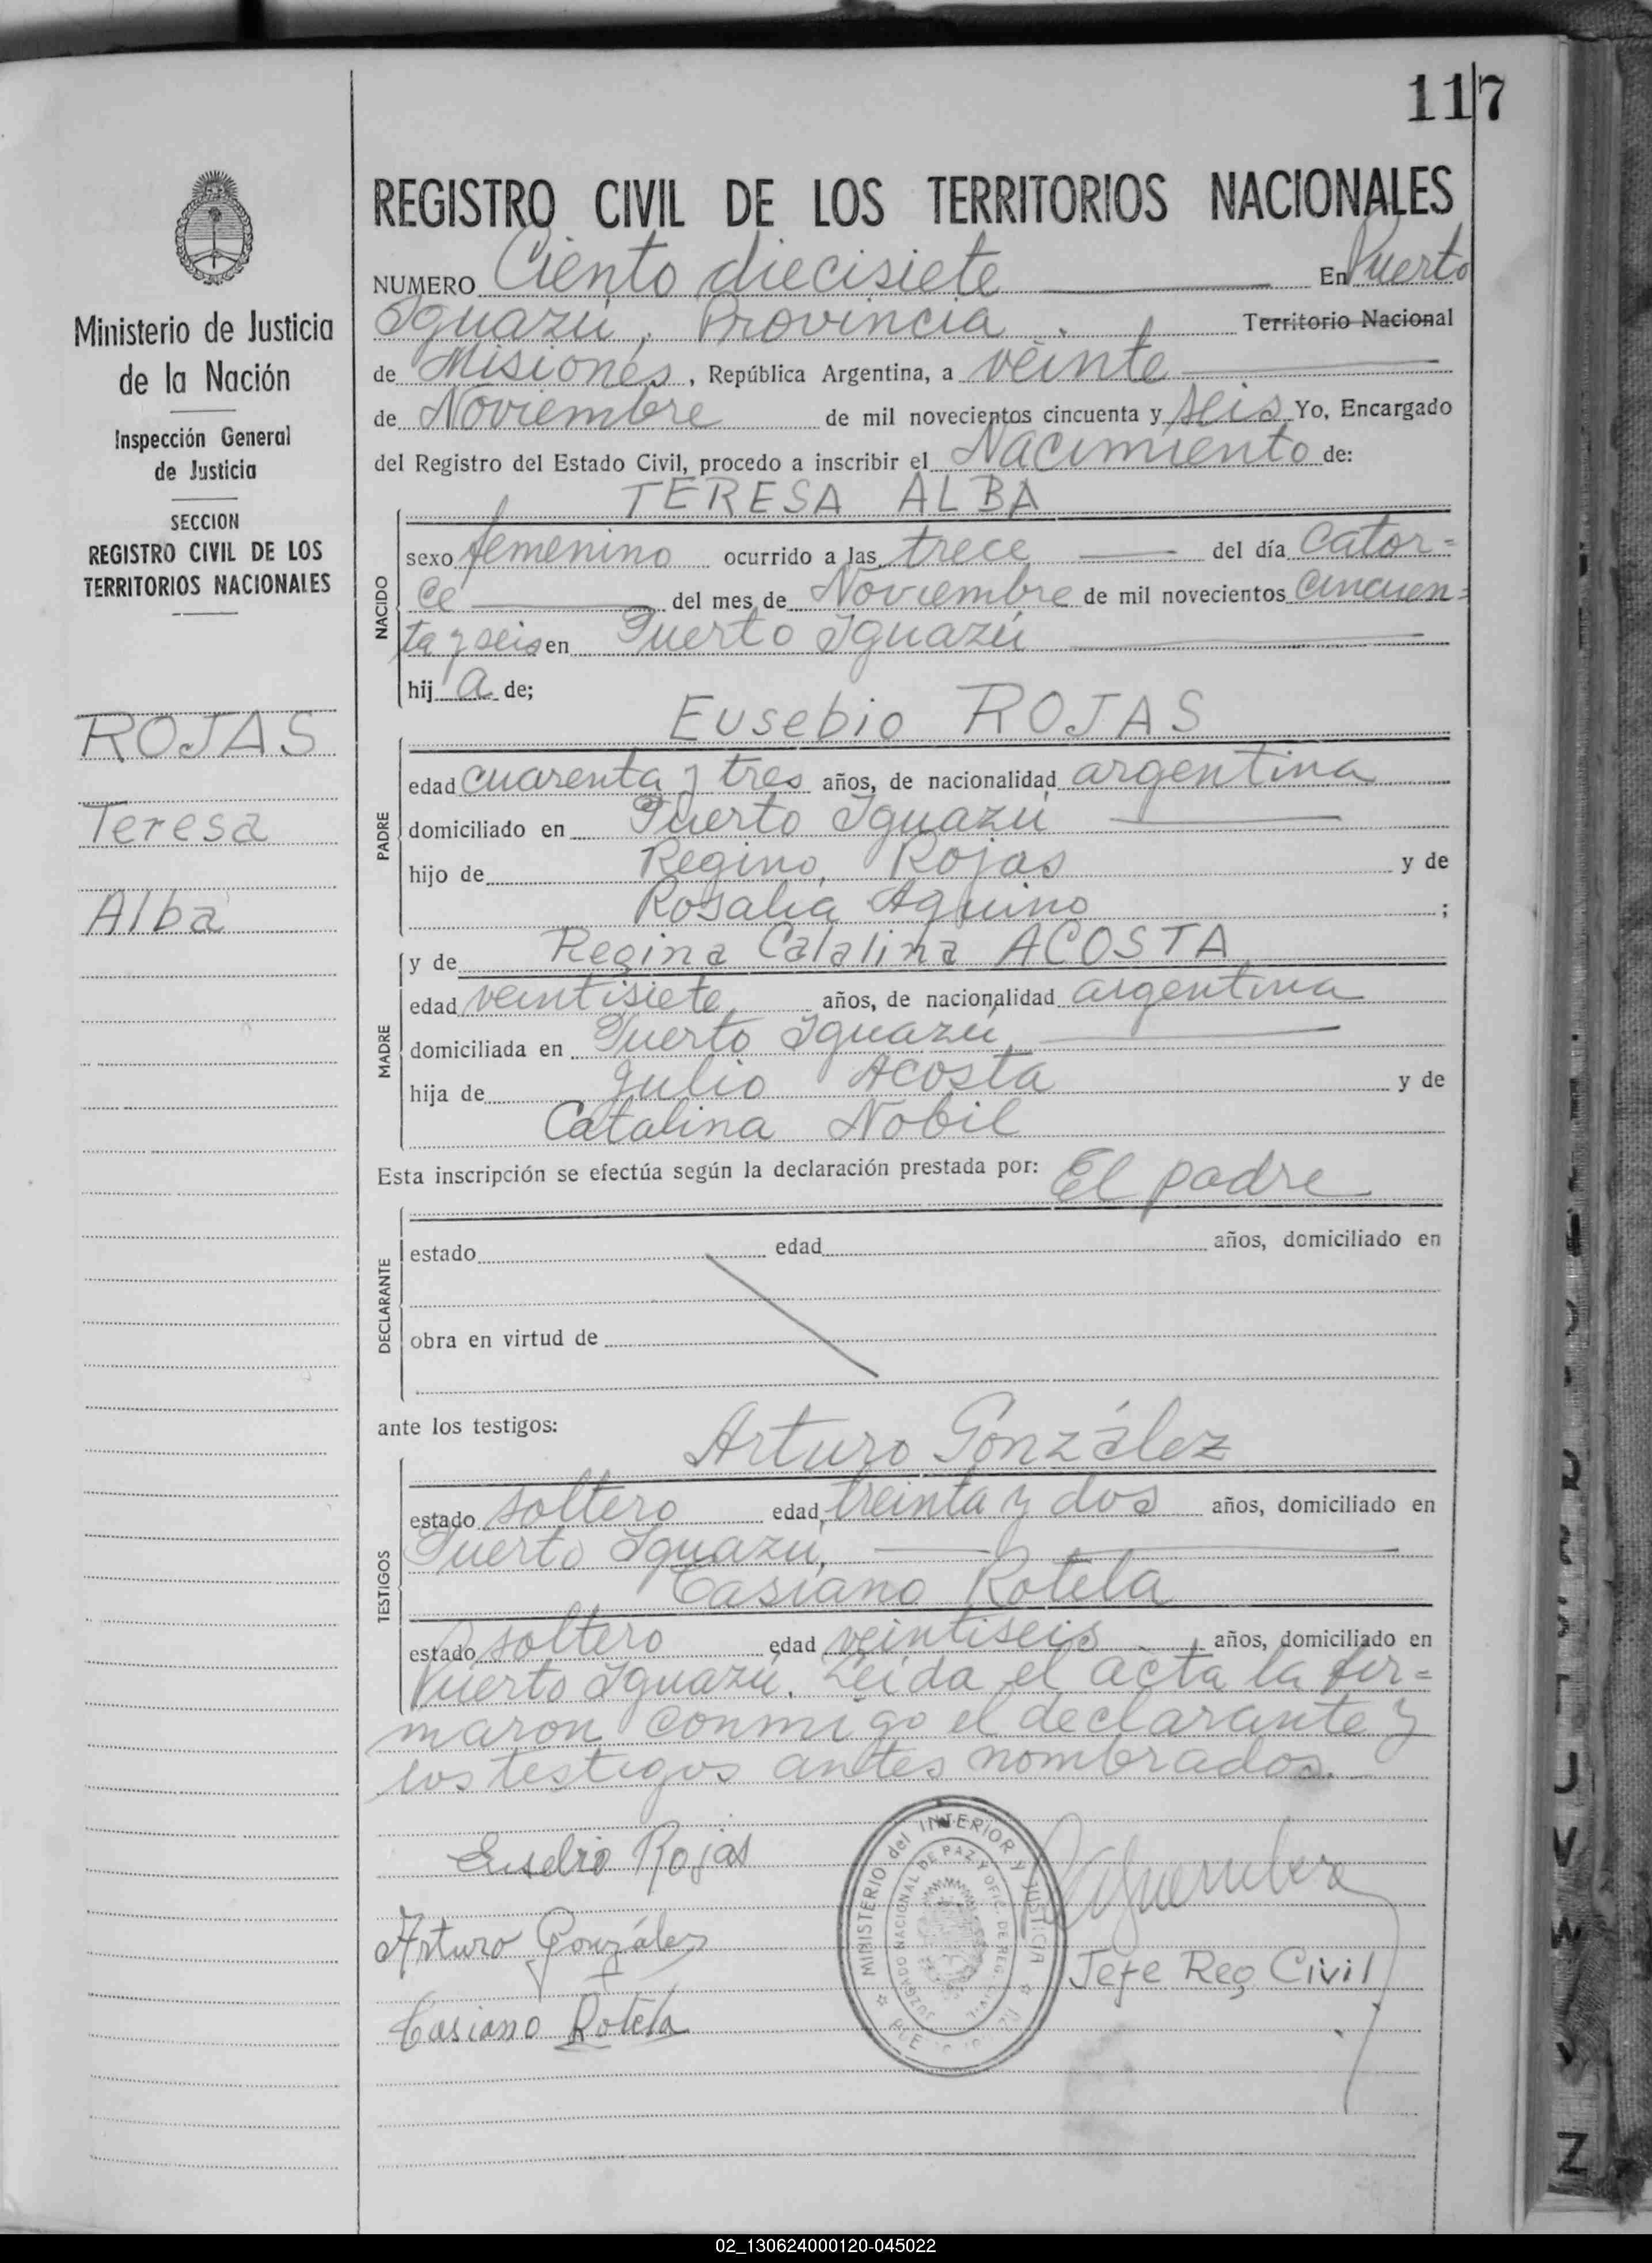 117
REGISTRO CIVIL DE LOS TERRITORIOS NACIONALES
NUMERO Ciento diecisiete En Puerto
Iguazú, Provincia. Territorio Nacional
de Misiones, República Argentina, a veinte
de Noviembre de mil novecientos cincuenta y seis Yo, Encargado
del Registro del Estado Civil, procedo a inscribir el Nacimiento de:
TERESA ALBA
NACIDO
sexo femenino ocurrido a las trece del día Cator=
ce del mes de Noviembre de mil novecientos Cincuen=
ta y seis en Puerto Iguazú
hij a de;
Eusebio ROJAS
PADRE
edad cuarenta y tres años, de nacionalidad argentina
domiciliado en Puerto Iguazú
hijo de Regino, Rojas y de
Rosalia Aquino ;
y de Regina Catalina ACOSTA
MADRE
edad veintisiete años, de nacionalidad argentina
domiciliada en Puerto Iguazú
hija de Julio Acosta y de
Catalina Nobil
Esta inscripción se efectúa según la declaración prestada por: El padre
DECLARANTE
estado edad años, domiciliado en
obra en virtud de
ante los testigos:
Arturo González
TESTIGOS
estado soltero edad treinta y dos años, domiciliado en
Puerto Iguazú,
Casiano Rotela
estado soltero edad veintiseis años, domiciliado en
Puerto Iguazú. Leída el acta la fir=
maron conmigo el declarante y
los testigos antes nombrados.
Eusebio Rojas
Arturo González
Casiano Rotela
MINISTERIO del INTERIOR Y JUSTICIA
JUZGADO NACIONAL DE PAZ Y OFIC. DE REG. CIVIL
Jefe Reg Civil
Ministerio de Justicia
de la Nación
Inspección General
de Justicia
SECCION
REGISTRO CIVIL DE LOS
TERRITORIOS NACIONALES
ROJAS
Teresa
Alba
U
V
W
Z
02_130624000120-045022